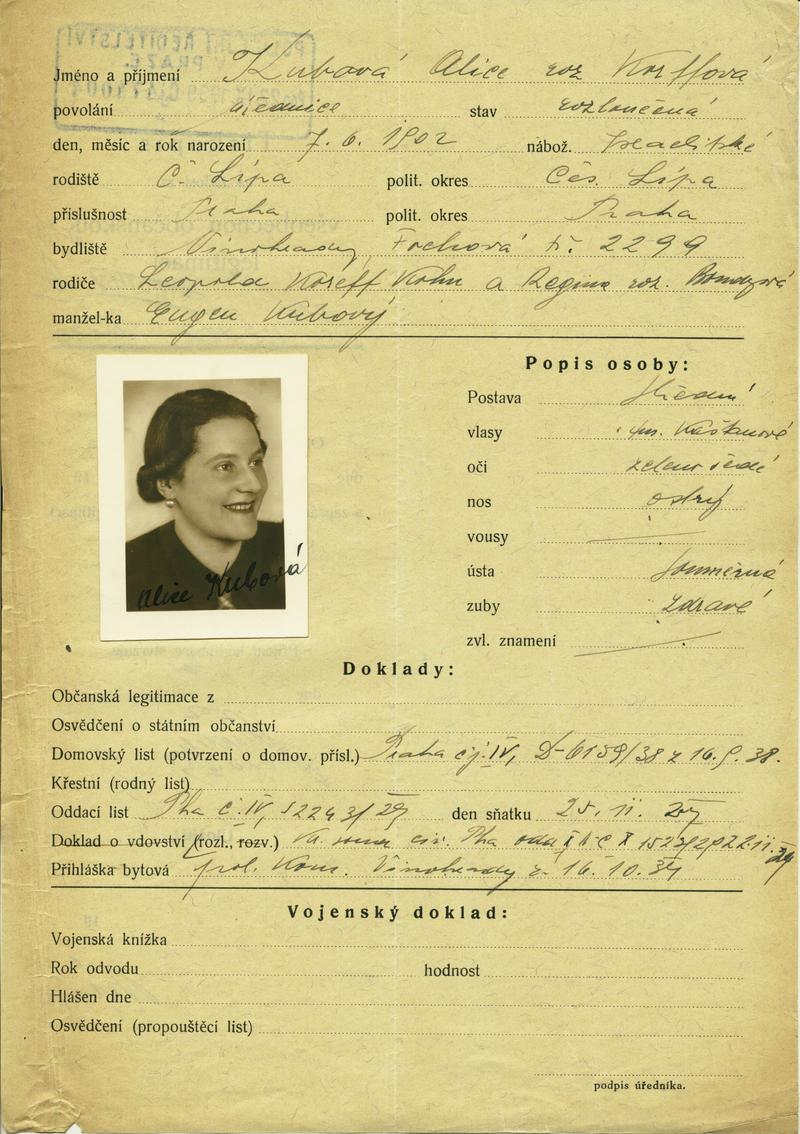 Jméno a příjmení Kubová Alice roz Korffová
povolání úřednice stav rozloučená
den, měsíc a rok narození 7. 6. 1902 nábož. Israelitské
rodiště Č. Lípa polit. okres Čes. Lípa
příslušnost Praha polit. okres Praha
bydliště Vinohrady, Fochová tř. 2299
rodiče Leopold Koreff Kohn a Regina roz. Bondyová
manžel-ka Eugen Kubový
Popis osoby:
Postava střední
vlasy tm. Kaštanové
oči zeleno šedé
nos ostrý
vousy
ústa souměrná
zuby zdravé
zvl. znamení
Alice Kubová
Doklady:
Občanská legitimace z
Osvědčení o státním občanství
Domovský list (potvrzení o domov. přísl.) Praha čj. IV, D-6159/38 z 16. 9. 38.
Křestní (rodný list)
Oddací list Pha č. IV, 52243/29 den sňatku 25. 11.
Doklad o vdovství (rozl., rozv.) civ. Pha
Přihláška bytová pol. Kom. Vinohrady z 16. 10. 34
Vojenský doklad:
Vojenská knížka
Rok odvodu hodnost
Hlášen dne
Osvědčení (propouštěcí list)
podpis úředníka.